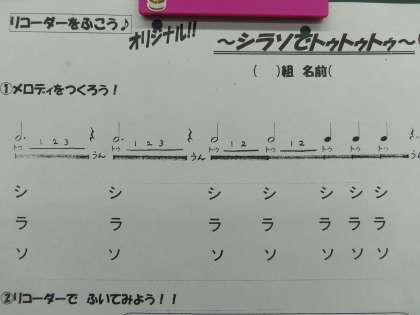 リコーダーをふこう♪
オリジナル!!
～シラソでトゥトゥトゥ～
(　)組 名前(
①メロディをつくろう！
1 2 3 1 2 3 1 2 1 2
トゥ うん トゥ うん トゥ トゥ トゥ トゥ トゥ うん
シ シ シ シ シ シ シ
ラ ラ ラ ラ ラ ラ ラ
ソ ソ ソ ソ ソ ソ ソ
②リコーダーで ふいてみよう！！